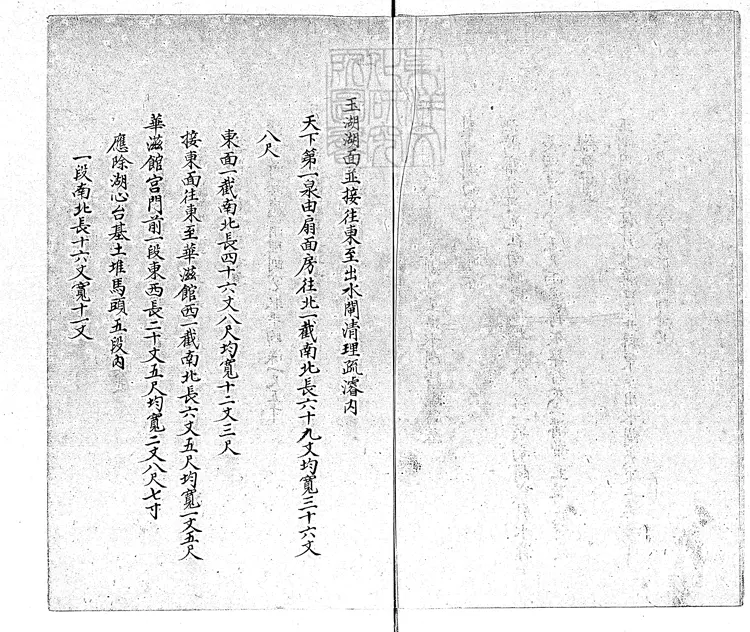 玉湖湖面並接往東至出水閘清理疏濬內
天下第一泉由扇面房往北一截南北長六十九丈均寬三十六丈
八尺
東面一截南北長四十六丈八尺均寬十二丈三尺
接東面往東至華滋館西一截南北長六丈五尺均寬一丈五尺
華滋館宮門前一段東西長二十丈五尺均寬二丈八尺七寸
應除湖心台基土堆馬頭五段內
一段南北長十六丈寬十一丈